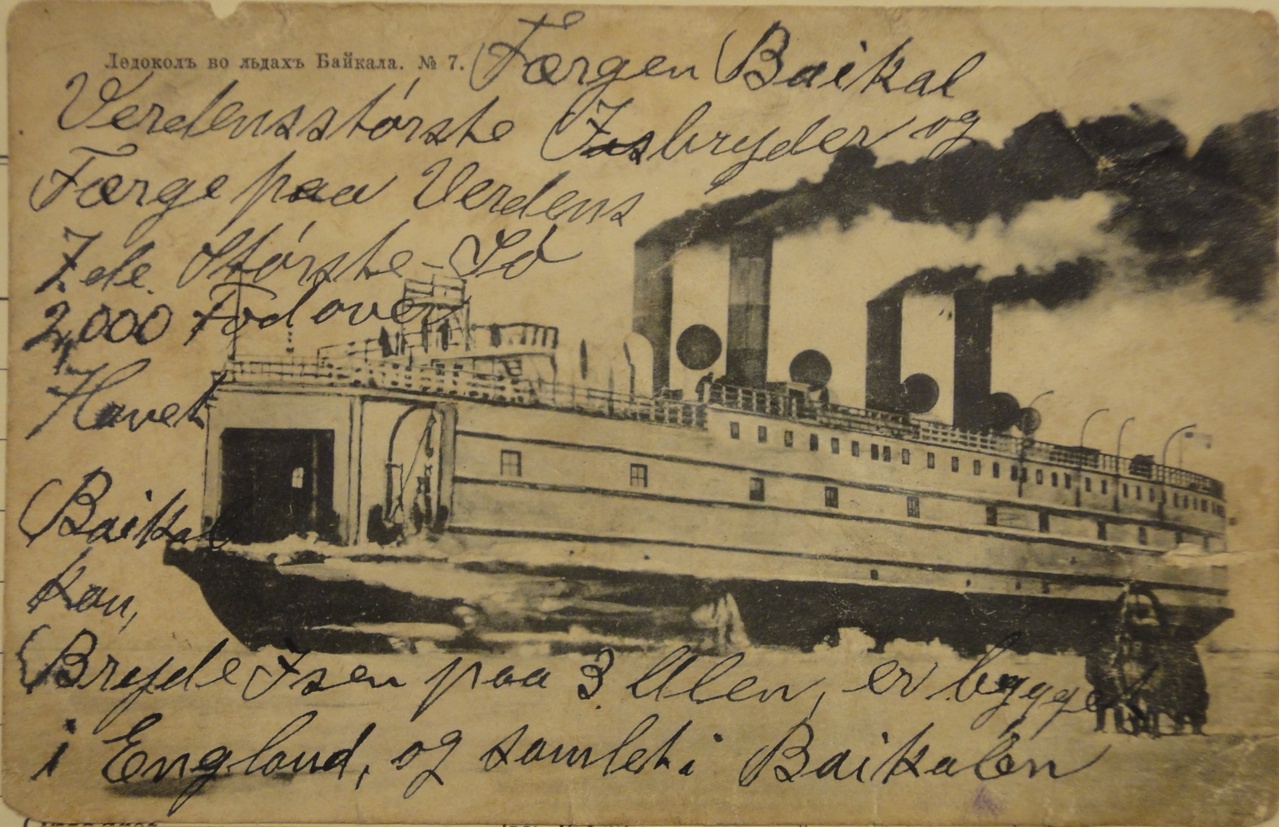 Ледоколъ во льдахъ Байкала. № 7.
Færgen Baikal
Verdensstørste Isbryder og
Færge paa Verdens
7de. Største-Sø
2,000 Fod over
Havet
Baikal
kan,
Bryde Isen paa 3 Alen, er bygget
i England, og samlet i Baikalen